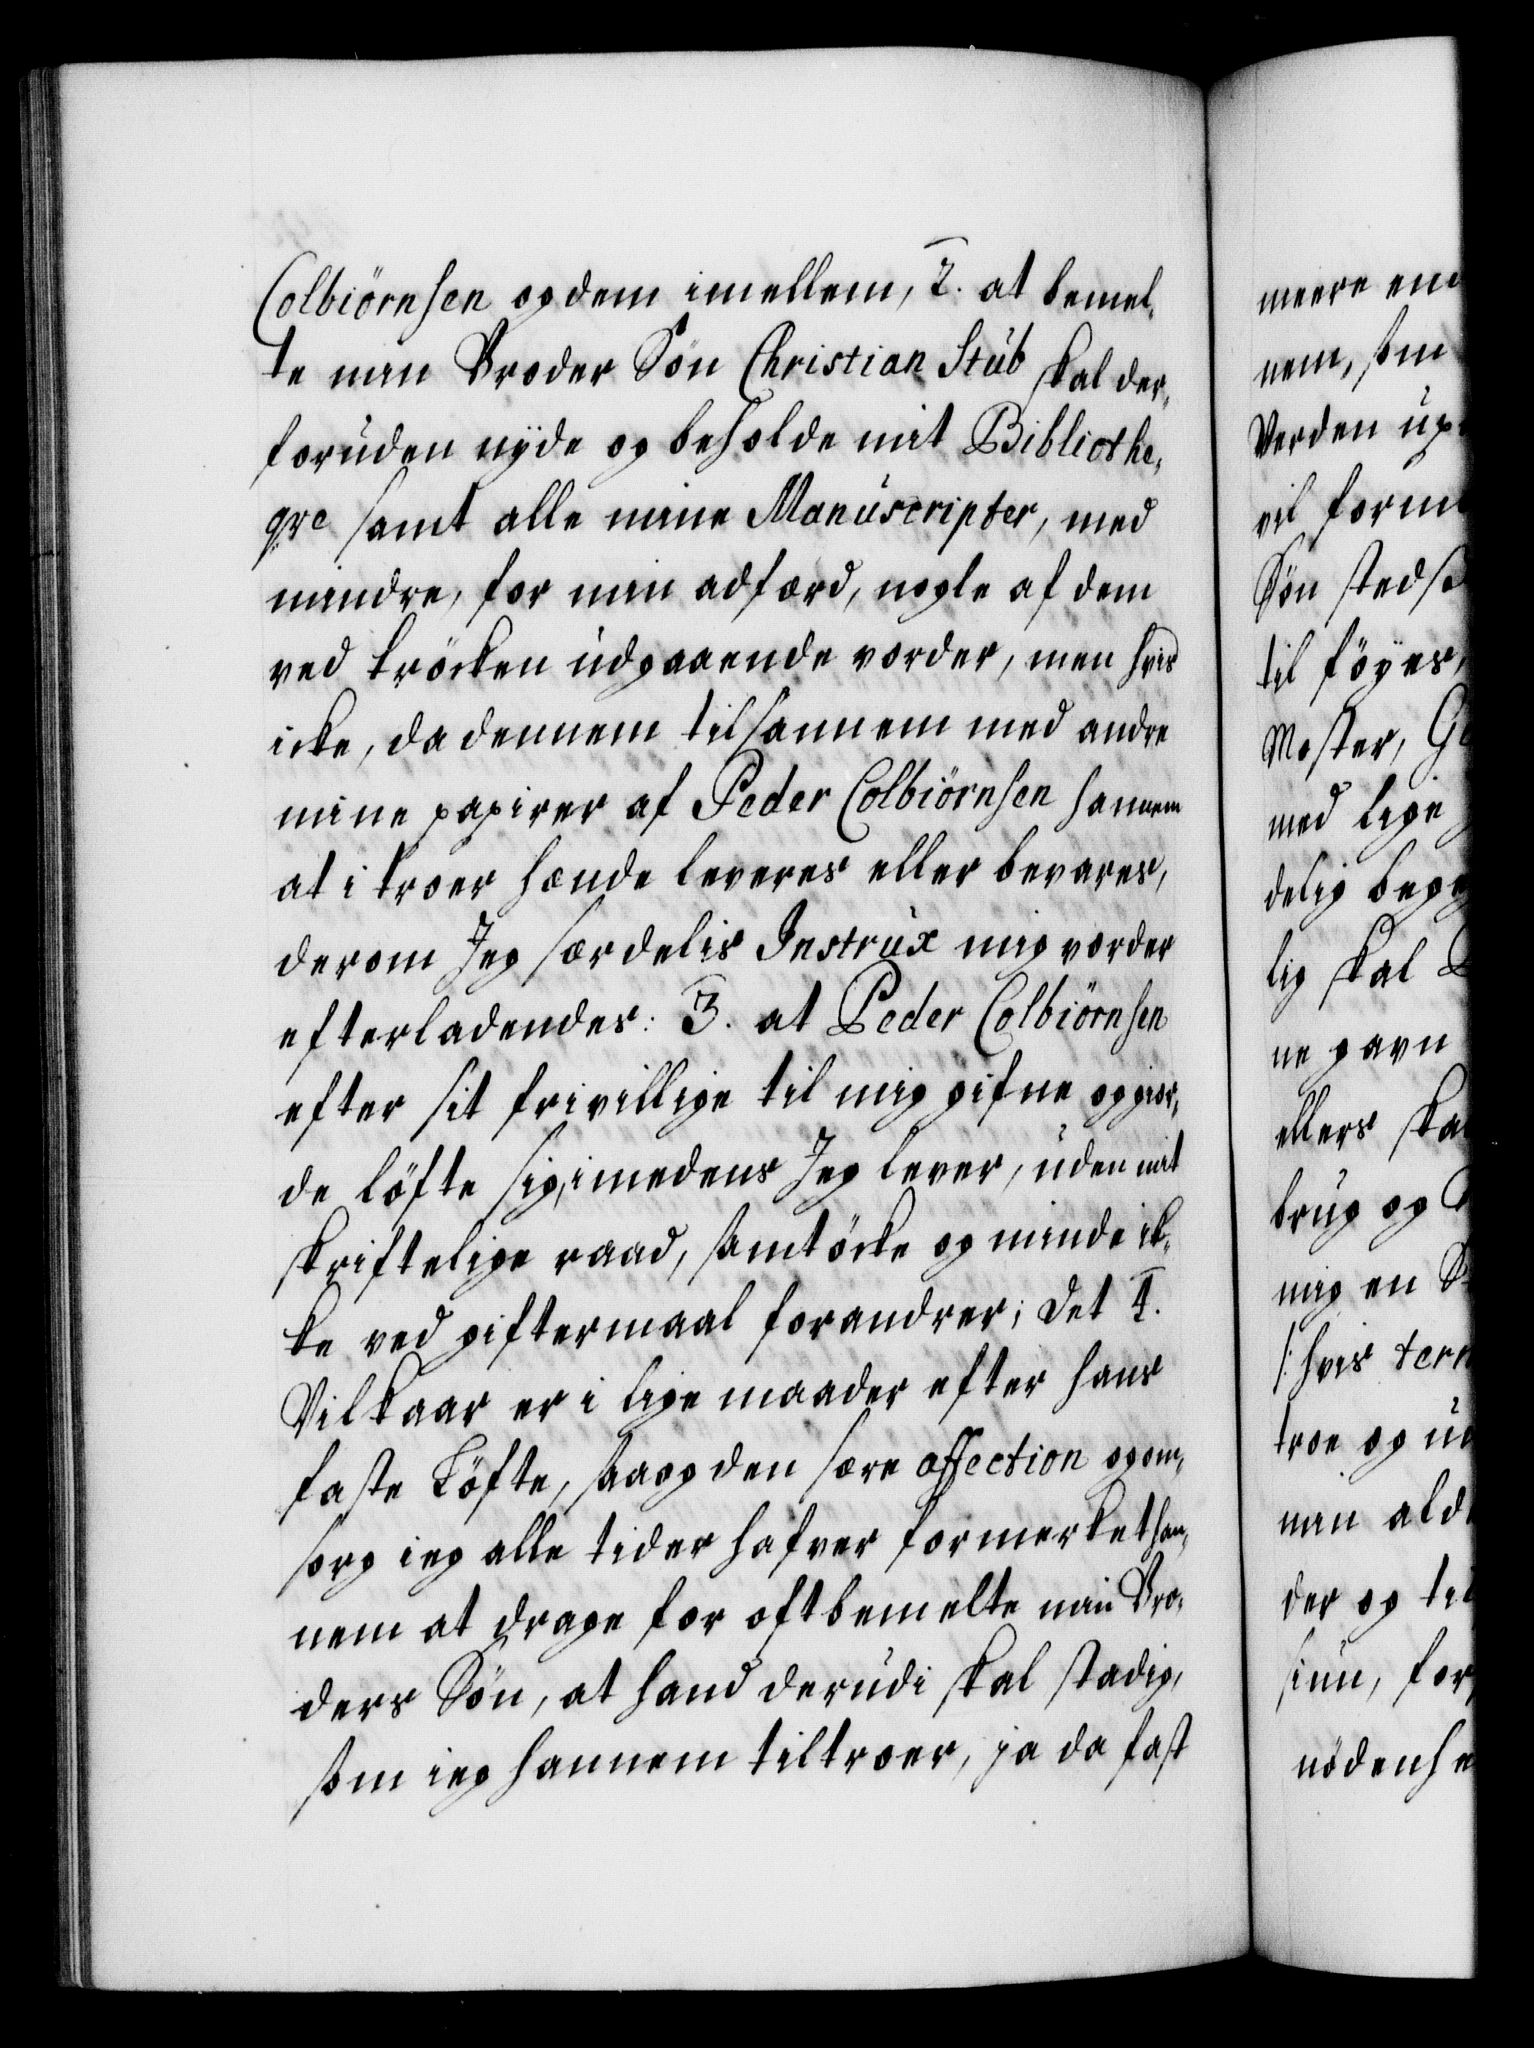 Colbiörnsen og dem imellem, 2. at bemel,
te min Broder Sön Christian Stüb skal der,
foruden nÿde og beholde mit Bibliothe,
qve samt alle mine Manuscripter, med
mindre, for min adfærd, nogle af dem
ved tröcken udgaaende vorder, men hvis
icke, da dennem tilsammem med andre
mine papirer af Peder Colbiörnsen hannem
at i troer hænde leveres eller bevares,
derom Jeg særdelis Instrux mig vorder
efterladendes: 3. at Peder Colbiörnsen
efter sit frivillige til mig gifne og gior,
de löfte sig, imedens Jeg lever, uden mit
skriftelige raad, samtöcke og minde ik,
ke ved giftermaal forandrer; Det 4.
Vilkaar er i lige maader efter hans
faste Löfte, saa og den sære affection og om,
sorg ieg alle tider hafver formerket han,
nem at drage for oftbemelte min Bro,
ders Sön, at hand derudi skal stadig,
som ieg hannem tiltroer, ja da fast
meere
nem, som
Verden
vil
Sön stedse
til föÿes,
Moster,
med lige
delig
lig skal
ne gavn
ellers
brug og
mig en
/: hvis
troe og
min
der og
sinn, for